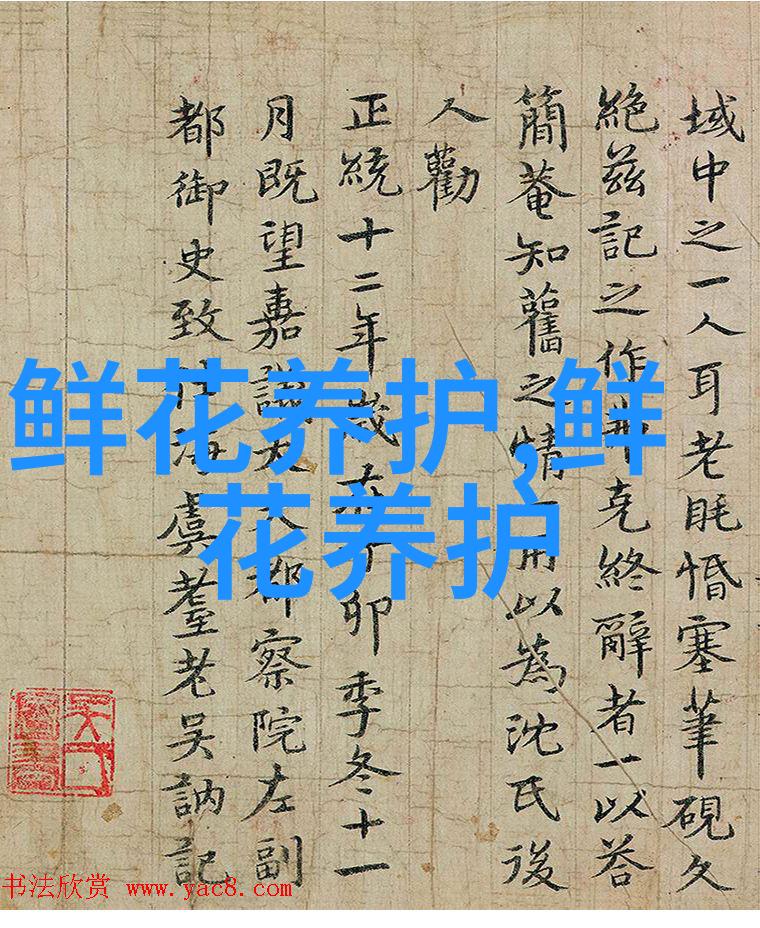 域中之一人耳老眊惛塞筆硯久
絶兹記之作弗克終辭者一以荅
簡菴知舊之情一用以為沈氏後
人勸
正統十二年歲在丁卯季冬十一
月既望嘉議大夫都察院左副
都御史致仕海虞耋老吳訥記
鲜花养护,鲜
花养护
书法欣赏 www.yac8.com